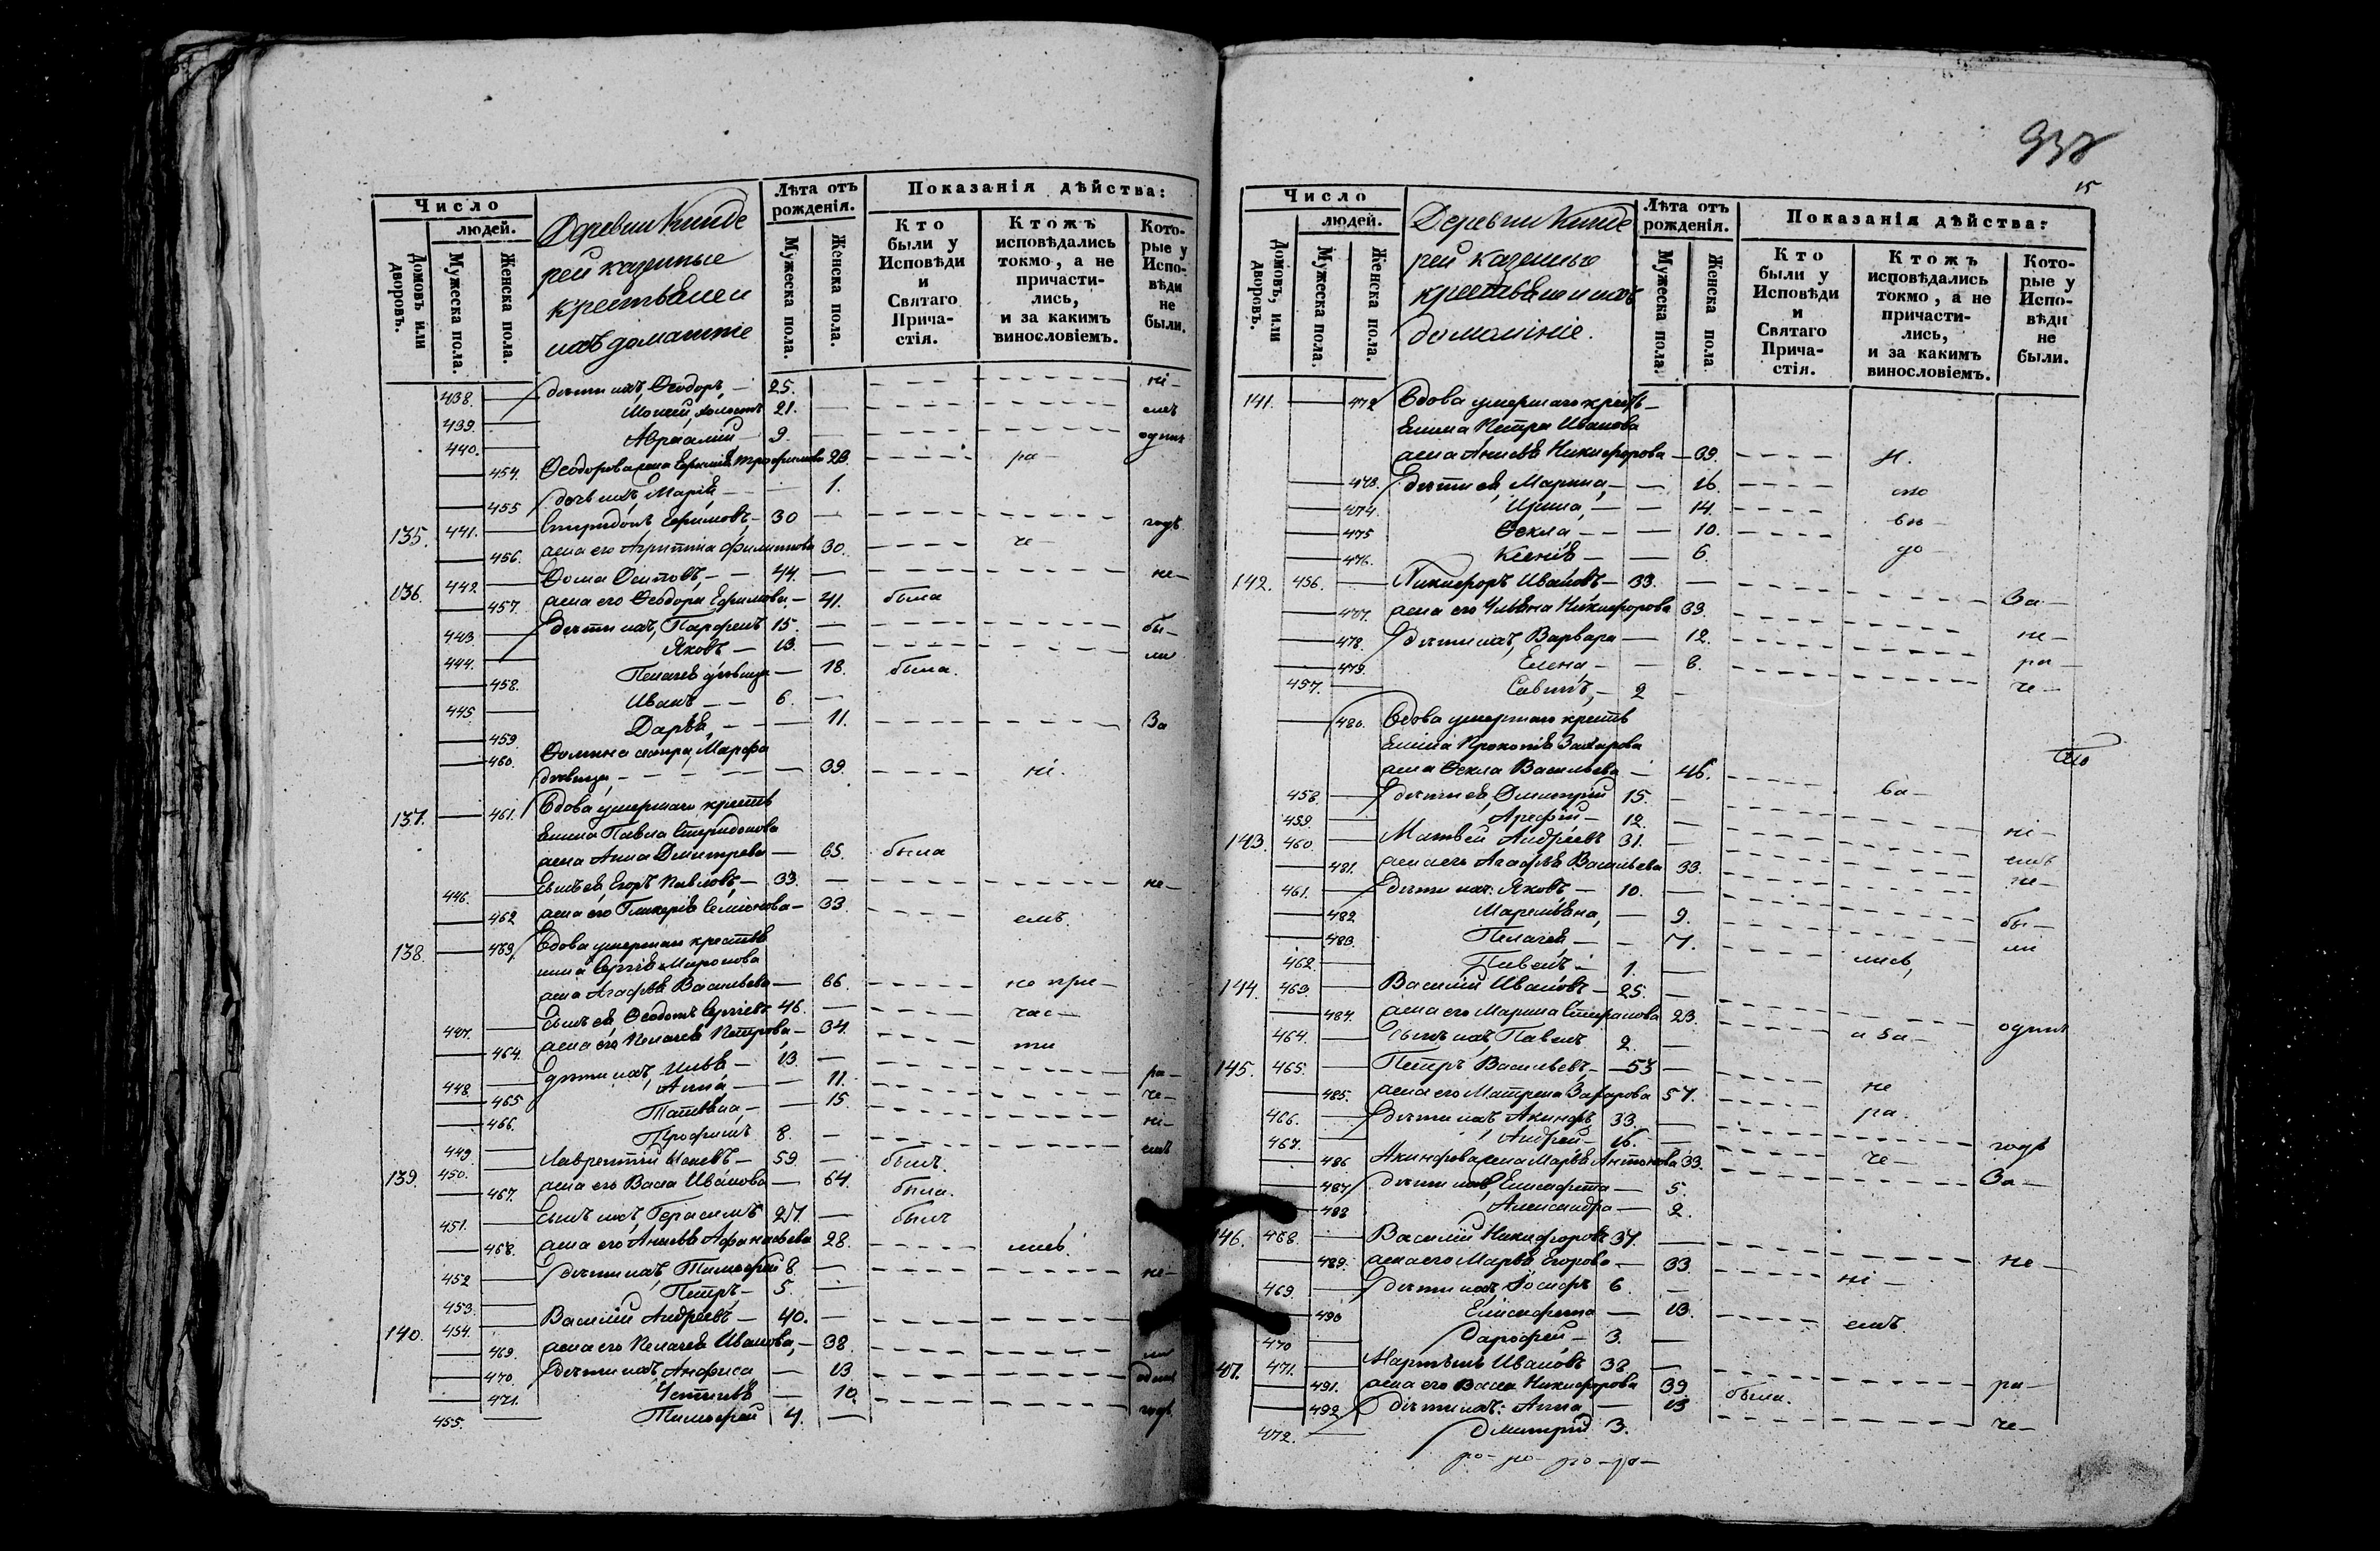 Число
людей.
Домовъ или дворовъ.
Мужеска пола.
Женска пола.
Деревни Кинде
рей казенные
крестьяне и
ихъ домашніе
Лѣта отъ рожденія.
Мужеска пола.
Женска пола.
Показанія дѣйства:
Кто были у Исповѣди и Святаго Прича-стія.
Ктожъ исповѣдались токмо, а не причасти-лись, и за какимъ винословіемъ.
Кото-рые у Испо-вѣди не были.
438. дѣти ихъ, Ѳеодоръ, 25. ні-
439. Моисей, холостъ 21. емъ
440. Авраамій 9.
454. Ѳеодорова жена Трофимова 23. ра-
455 дочь ихъ, Марія 1.
135. 441. Спиридонъ Ефимовъ, 30 годъ
456. жена его Агрипина Филиппова 30. че-
136. 442. Ѳома Осиповъ, 44. не-
457. жена его Ѳеодора Ефимова, 41. была
443. дѣти ихъ, Парфенъ 15. бы-
444. Яковъ 13. ли
458. Пелагея дѣвица 18. была.
445. Иванъ 6.
459. Дарья, 11. За
460. Ѳомина сестра, Марфа
дѣвица, 39. ні.
137. 461. Вдова умершаго кресть
янина Павла Спиридонова
жена Анна Дмитрева 65. была
446. Сынъ ея, Егоръ Павловъ, 33. не-
462 жена его Гликерія Семіонова 33. емъ.
138. 463. Вдова умершаго кресть
янина Сергія Миронова
жена Агафья Васильева 66. не при-
447. Сынъ ея, Ѳеодотъ Сергіевъ 46. час-
464. жена его Пелагея Петрова, 34. ти
448. дѣти ихъ, Илья 13 ра-
465 Анна 11. че-
466. Татьяна 15. ні-
449 Трофимъ 8. емъ
139. 450. Лаврентій 59. былъ.
467. жена его Васса Иванова 64. была.
451. Сынъ ихъ, Герасимъ 27. былъ
468. жена его Анисья Афанасьева 28. лись.
452 дѣти ихъ, Тимофей 8. не-
453. Петръ, 5.
140. 454. Василій Андреевъ 40.
469. жена его Пелагея Иванова, 38. ли
470. дѣти ихъ, Анфиса 13
471. Устинья 10.
455. Тимофей 4. годъ
15
Число
людей.
Домовъ, или дворовъ.
Мужеска пола.
Женска пола.
Деревни Кинде
рей казенные
крестьяне и ихъ
домашніе.
Лѣта отъ рожденія.
Мужеска пола.
Женска пола
Показанія дѣйства:
Кто были у Исповѣди и Святаго Прича-стія.
Ктожъ исповѣдались токмо, а не причасти-лись, и за какимъ винословіемъ.
Кото-рые у Испо-вѣди не были.
141. 472 Вдова умершаго кресть-
янина Петра Иванова
жена Анисья Никифорова 39.
473. дѣти ея, Марина, 16.
474. Ирина, 14.
475 Ѳекла 10.
476. Ксенія 6
142. 456. Никифоръ Ивановъ 33. За-
477. жена его Ульяна Никифорова 33. не-
478. дѣти ихъ, Варвара 12. ра-
479. Елена 8. че-
457. Савинъ, 2
480. Вдова умершаго кресть
янина Прокопія Захарова
жена Ѳекла Васильева 46.
458. дѣти ея, Дмитрій 15. ва-
459. Арефій 12. ні-
143. 460. Матвей Андреевъ 31. емъ
481. жена его Агафья Васильева 33. не-
461. дѣти ихъ: Яковъ 10.
482 Маремьяна, 9. бы-
483. Пелагея 7. ли
462. Павелъ 1. лись,
144. 463. Василій Ивановъ 25.
484. жена его Марина Степанова 23. одинъ
464. Сынъ ихъ Павелъ 2. и за-
145. 465. Петръ Васильевъ, 53
485. жена его Матрена Захарова 57. не
466. дѣти ихъ Акинфъ 33. ра.
467. Андрей 16. годъ
486 Акинфова жена Марья Антонова 33. че- За-
487 дѣти ихъ, Елисафета 5.
488 Александра 2.
146. 468. Василій Никифоровъ 37.
489. жена его Марья Егорова 33. не
469. дѣти ихъ, Іосифъ 6. ні-
490 Елисафета 13. емъ
470 Дарофей 3.
147. 471. Мартынъ Ивановъ 38
491. жена его Васса Никифорова 39. была. ра-
492 дѣти ихъ: Анна 13
472. Дмитрій 3. че-